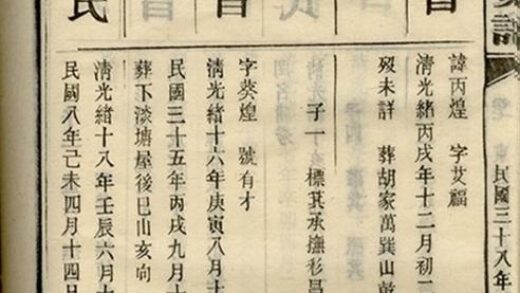 民國三十八年
諱丙煌 字艾福
清光緒丙戌年十二月初
歿未詳 葬胡家萬巽山乾
子一 標其承撫衫昌
字葵煌 號有才
清光緒十六年庚寅八月十
民國三十五年丙戌九月十
葬下淡塘屋後巳山亥向
清光緒十八年壬辰六月十
民國八年己未四月十四日
民